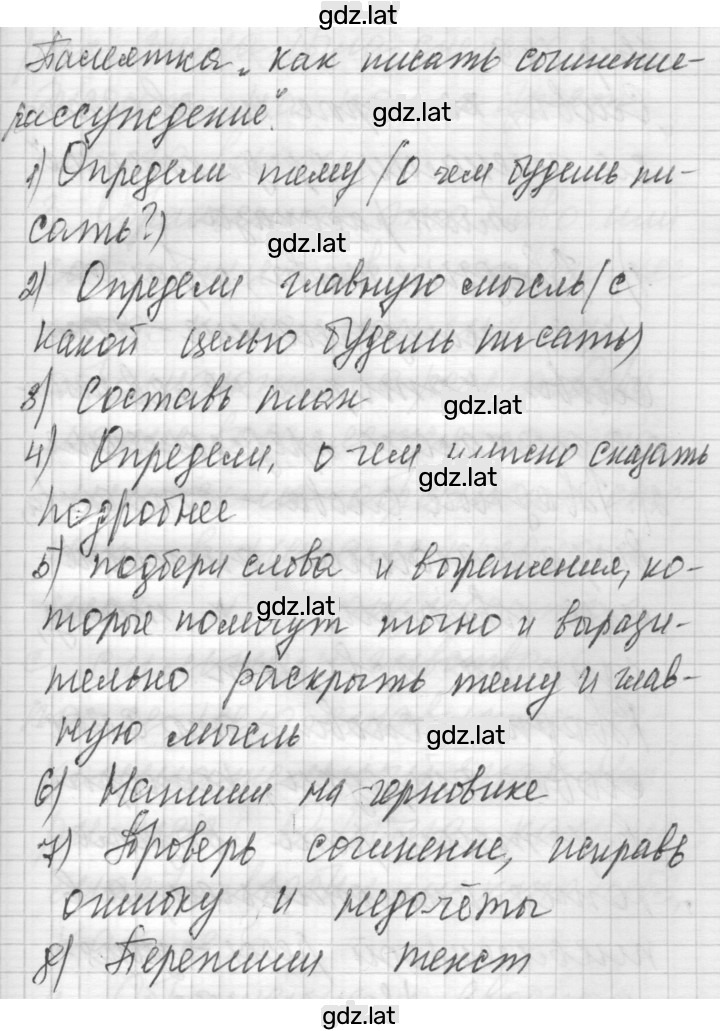 gdz.lat
Памятка „как писать сочинение-
рассуждение".
gdz.lat
1) Определи тему (о чем будешь пи-
сать?)
gdz.lat
2) Определи главную мысль (с
какой целью будешь писать)
3) Составь план
gdz.lat
4) Определи, о чем нужно сказать
gdz.lat
подробнее
5) подбери слова и выражения, ко-
gdz.lat
торые помогут точно и вырази-
тельно раскрыть тему и глав-
ную мысль
gdz.lat
6) Напиши на черновике
7) Проверь сочинение, исправь
ошибку и недочёты
8) Перепиши текст
gdz.lat